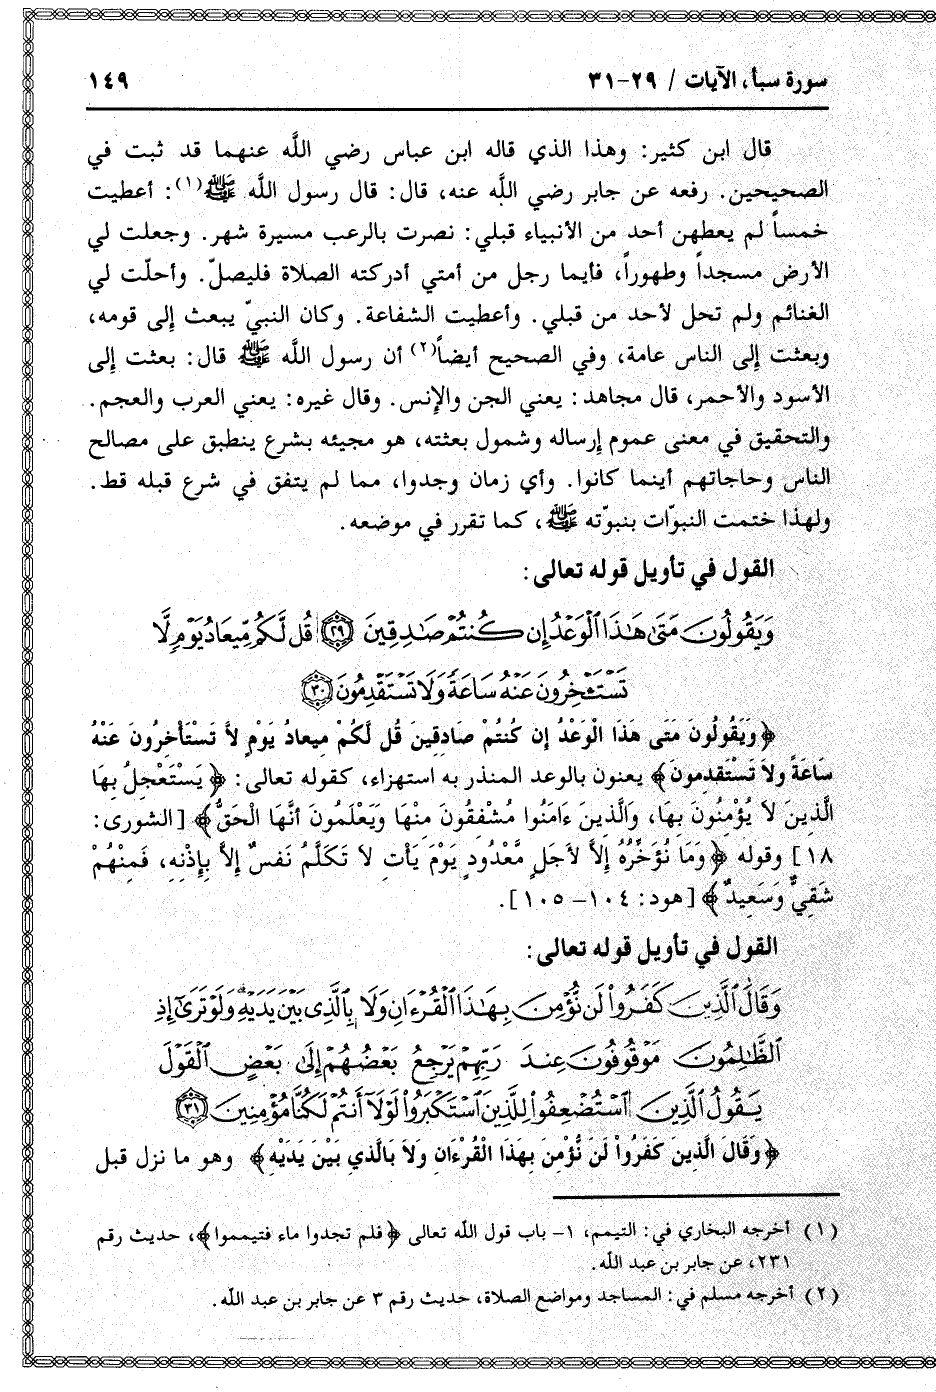 سورة سبأ، الآيات / ٢٩-٣١ ١٤٩
قال ابن كثير: وهذا الذي قاله ابن عباس رضي اللَّه عنهما قد ثبت في
الصحيحين. رفعه عن جابر رضي اللَّه عنه، قال: قال رسول اللَّه ﷺ(١): أعطيت
خمساً لم يعطهن أحد من الأنبياء قبلي: نصرت بالرعب مسيرة شهر. وجعلت لي
الأرض مسجداً وطهوراً، فأيما رجل من أمتي أدركته الصلاة فليصلّ. وأحلّت لي
الغنائم ولم تحل لأحد من قبلي. وأعطيت الشفاعة. وكان النبيّ يبعث إلى قومه،
وبعثت إلى الناس عامة، وفي الصحيح أيضاً(٢) أن رسول اللَّه ﷺ قال: بعثت إلى
الأسود والأحمر، قال مجاهد: يعني الجن والإنس. وقال غيره: يعني العرب والعجم.
والتحقيق في معنى عموم إرساله وشمول بعثته، هو مجيئه بشرع ينطبق على مصالح
الناس وحاجاتهم أينما كانوا. وأي زمان وجدوا، مما لم يتفق في شرع قبله قط.
ولهذا ختمت النبوّات بنبوّته ﷺ، كما تقرر في موضعه.
القول في تأويل قوله تعالى:
وَيَقُولُونَ مَتَىٰ هَٰذَا ٱلْوَعْدُ إِن كُنتُمْ صَٰدِقِينَ ٢٩ قُل لَّكُم مِّيعَادُ يَوْمٍ لَّا
تَسْتَـْٔخِرُونَ عَنْهُ سَاعَةً وَلَا تَسْتَقْدِمُونَ ٣٠
﴿وَيَقُولُونَ مَتَى هَذَا الْوَعْدُ إِن كُنتُمْ صَادِقِينَ قُل لَّكُمْ مِيعادُ يَوْمٍ لاَّ تَسْتَأْخِرُونَ عَنْهُ
سَاعَةً ولاَ تَسْتَقدِمونَ﴾ يعنون بالوعد المنذر به استهزاء، كقوله تعالى: ﴿يَسْتَعْجِلُ بِهَا
الَّذِينَ لاَ يُؤْمِنُونَ بِهَا، وَالَّذِينَ ءَامَنُوا مُشْفِقُونَ مِنْهَا وَيَعْلَمُونَ أَنَّهَا الْحَقُّ﴾ [الشورى:
١٨] وقوله ﴿وَمَا نُؤَخِّرُهُ إِلاَّ لأَجَلٍ مَّعْدُودٍ يَوْمَ يَأْتِ لاَ تَكَلَّمُ نَفْسٌ إِلاَّ بِإِذْنِهِ، فَمِنْهُمْ
شَقِيٌّ وَسَعِيدٌ﴾ [هود: ١٠٤- ١٠٥].
القول في تأويل قوله تعالى:
وَقَالَ ٱلَّذِينَ كَفَرُواْ لَن نُّؤْمِنَ بِهَٰذَا ٱلْقُرْءَانِ وَلَا بِٱلَّذِي بَيْنَ يَدَيْهِ وَلَوْ تَرَىٰٓ إِذِ
ٱلظَّٰلِمُونَ مَوْقُوفُونَ عِندَ رَبِّهِمْ يَرْجِعُ بَعْضُهُمْ إِلَىٰ بَعْضٍ ٱلْقَوْلَ
يَقُولُ ٱلَّذِينَ ٱسْتُضْعِفُواْ لِلَّذِينَ ٱسْتَكْبَرُواْ لَوْلَآ أَنتُمْ لَكُنَّا مُؤْمِنِينَ ٣١
﴿وَقَالَ الَّذِينَ كَفَرُواْ لَنَ نُّؤْمِنَ بِهَذَا الْقُرْءَانِ ولاَ بَالَّذي بَيْنَ يَدَيْهِ﴾ وهو ما نزل قبل
(١) أخرجه البخاري في: التيمم، ١- باب قول اللَّه تعالى ﴿فلم تجدوا ماء فتيمموا﴾، حديث رقم
٢٣١، عن جابر بن عبد اللَّه.
(٢) أخرجه مسلم في: المساجد ومواضع الصلاة، حديث رقم ٣ عن جابر بن عبد اللَّه.